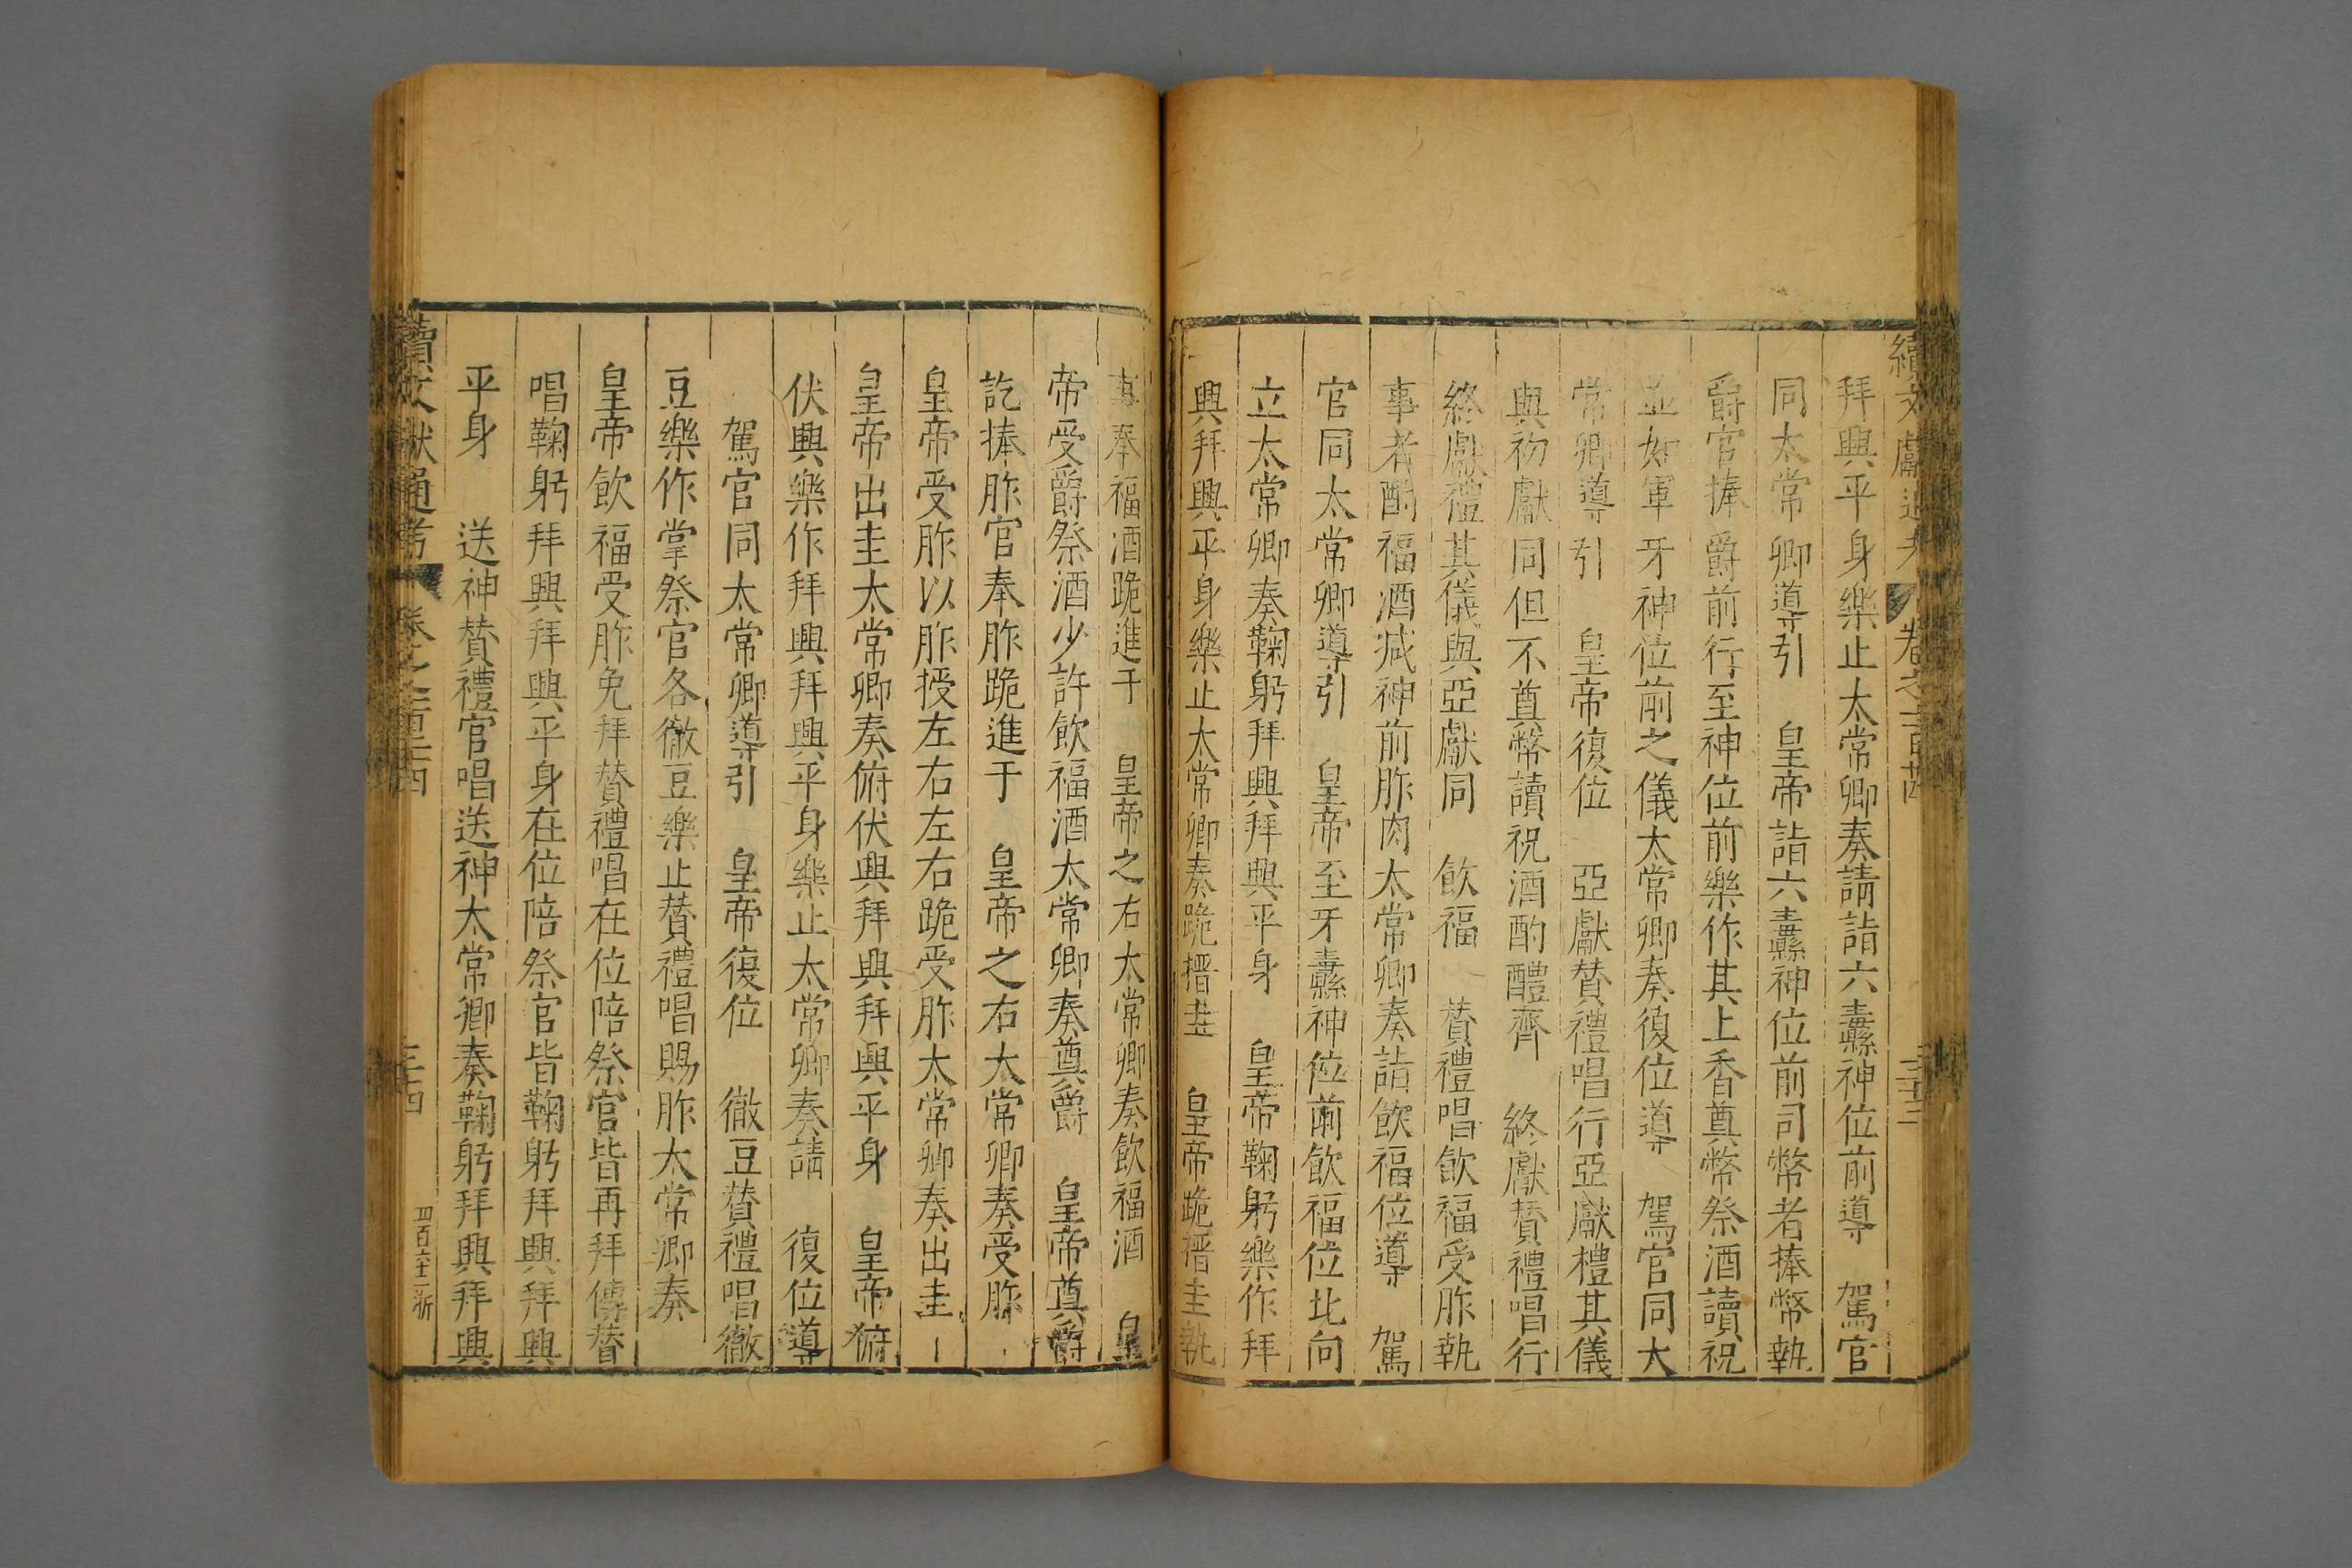 續文獻通考 卷之一百卅四 三十三
拜興平身樂止太常卿奏請詣六纛神位前導 駕官
同太常卿導引 皇帝詣六纛神位前司幣者捧幣執
爵官捧爵前行至神位前樂作其上香奠幣祭酒讀祝
並如軍牙神位前之儀太常卿奏復位導 駕官同太
常卿導引 皇帝復位 亞獻贊禮唱行亞獻禮其儀
與初獻同但不奠幣讀祝酒酌醴齊 終獻贊禮唱行
終獻禮其儀與亞獻同 飲福 贊禮唱飲福受胙執
事者酌福酒減神前胙肉太常卿奏詣飲福位導 駕
官同太常卿導引 皇帝至牙纛神位前飲福位北向
立太常卿奏鞠躬拜興拜興平身 皇帝鞠躬樂作拜
興拜興平身樂止太常卿奏跪搢圭 皇帝跪搢圭執
事奉福酒跪進于 皇帝之右太常卿奏飲福酒 皇
帝受爵祭酒少許飲福酒太常卿奏奠爵 皇帝奠爵
訖捧胙官奉胙跪進于 皇帝之右太常卿奏受胙
皇帝受胙以胙授左右左右跪受胙太常卿奏出圭
皇帝出圭太常卿奏俯伏興拜興拜興平身 皇帝俯
伏興樂作拜興拜興平身樂止太常卿奏請 復位導
駕官同太常卿導引 皇帝復位 徹豆贊禮唱徹
豆樂作掌祭官各徹豆樂止贊禮唱賜胙太常卿奏
皇帝飲福受胙免拜贊禮唱在位陪祭官皆再拜傳贊
唱鞠躬拜興拜興平身在位陪祭官皆鞠躬拜興拜興
平身 送神贊禮官唱送神太常卿奏鞠躬拜興拜興
續文獻通考 卷之一百三十四 三十四 四百六十一浙